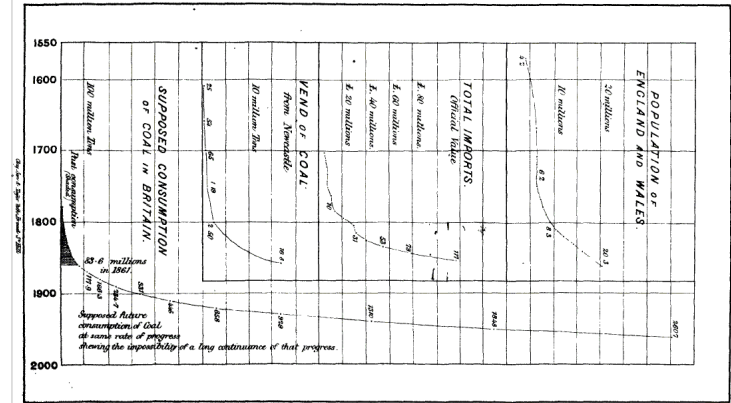 1550
1600
1700
1800
1900
2000
POPULATION OF
ENGLAND AND WALES.
20 millions
10 millions
6·2
8·3
20·3
TOTAL IMPORTS.
Official Value
£. 80 millions
£. 60 millions
£. 40 millions.
£. 20 millions
10
31
53
78
VEND OF COAL
from Newcastle
10 million Tons
·25
·52
·65
1·19
2·50
SUPPOSED CONSUMPTION
OF COAL IN BRITAIN.
100 million Tons
Past consumption
(shaded)
83·6 millions
in 1861.
117·9
166·3
234·7
331
466
658
929
1310
1848
2607
Supposed future
consumption of Coal
at same rate of progress
shewing the impossibility of a long continuance of that progress.